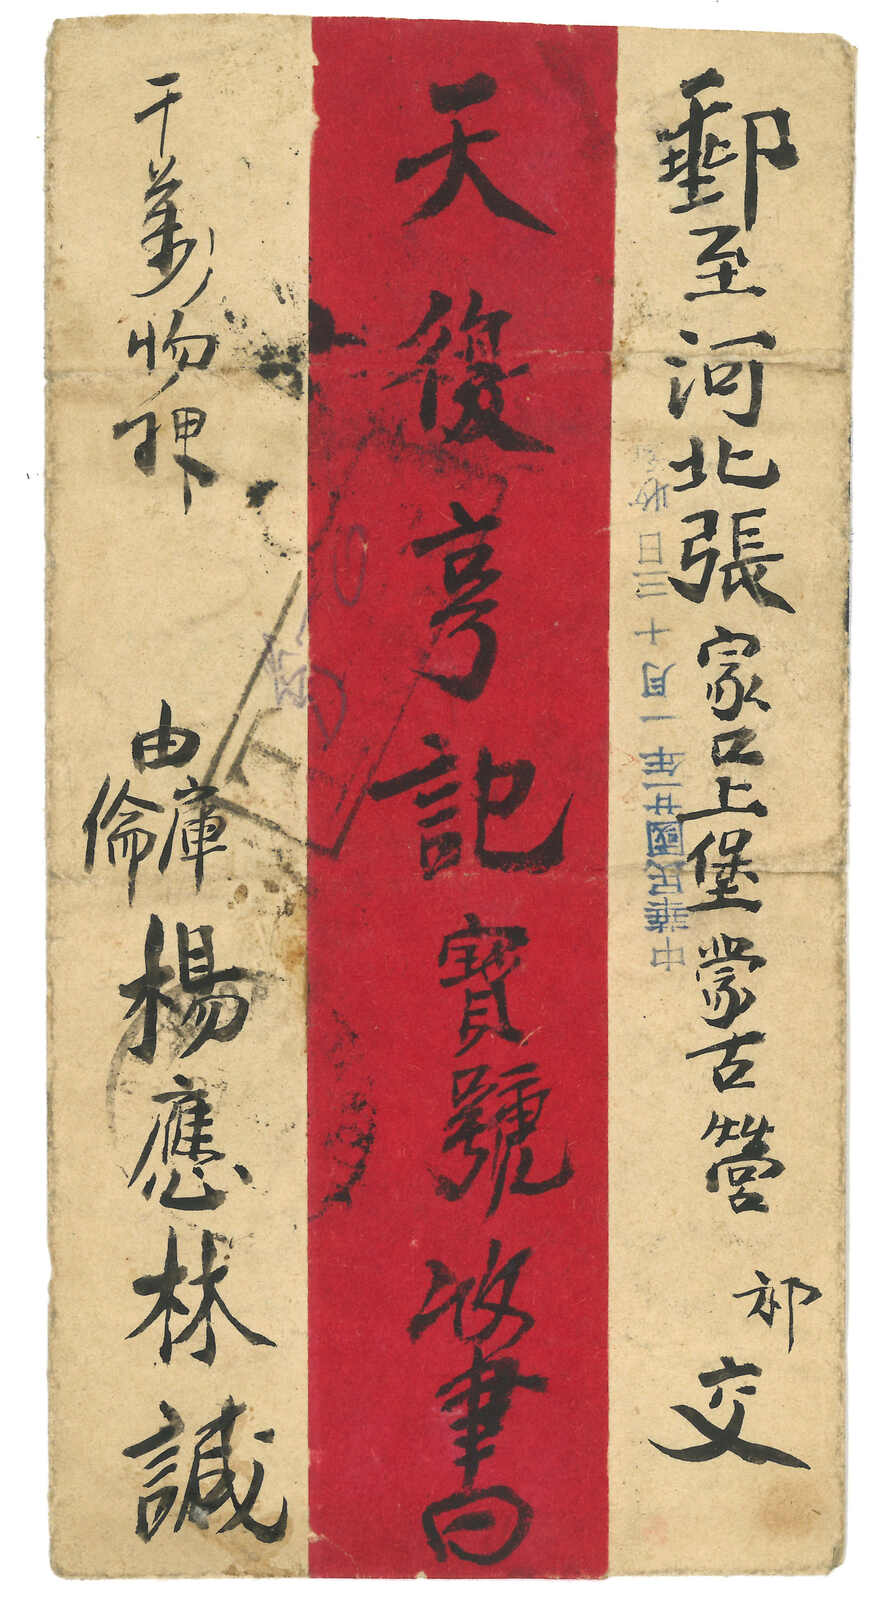 郵至河北張家口上堡蒙古營 祁 交
中華民國廿一年一月十三日收
天復亨記寶號收書曰
千萬勿
由庫倫楊應林誠